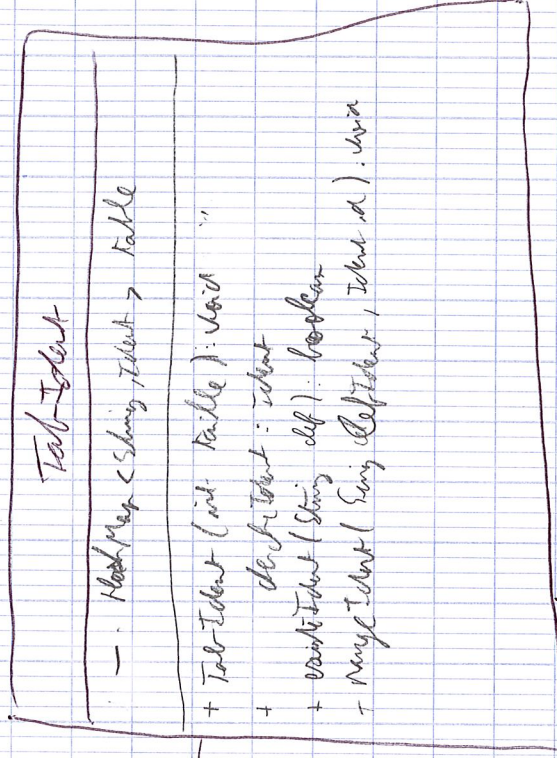 TabIdent
- HashMap <String, Ident> table
+ TabIdent (int taille) : void
+ chercheIdent : Ident
+ existeIdent (String clef) : boolean
+ rangeIdent (String clefIdent, Ident id) : void